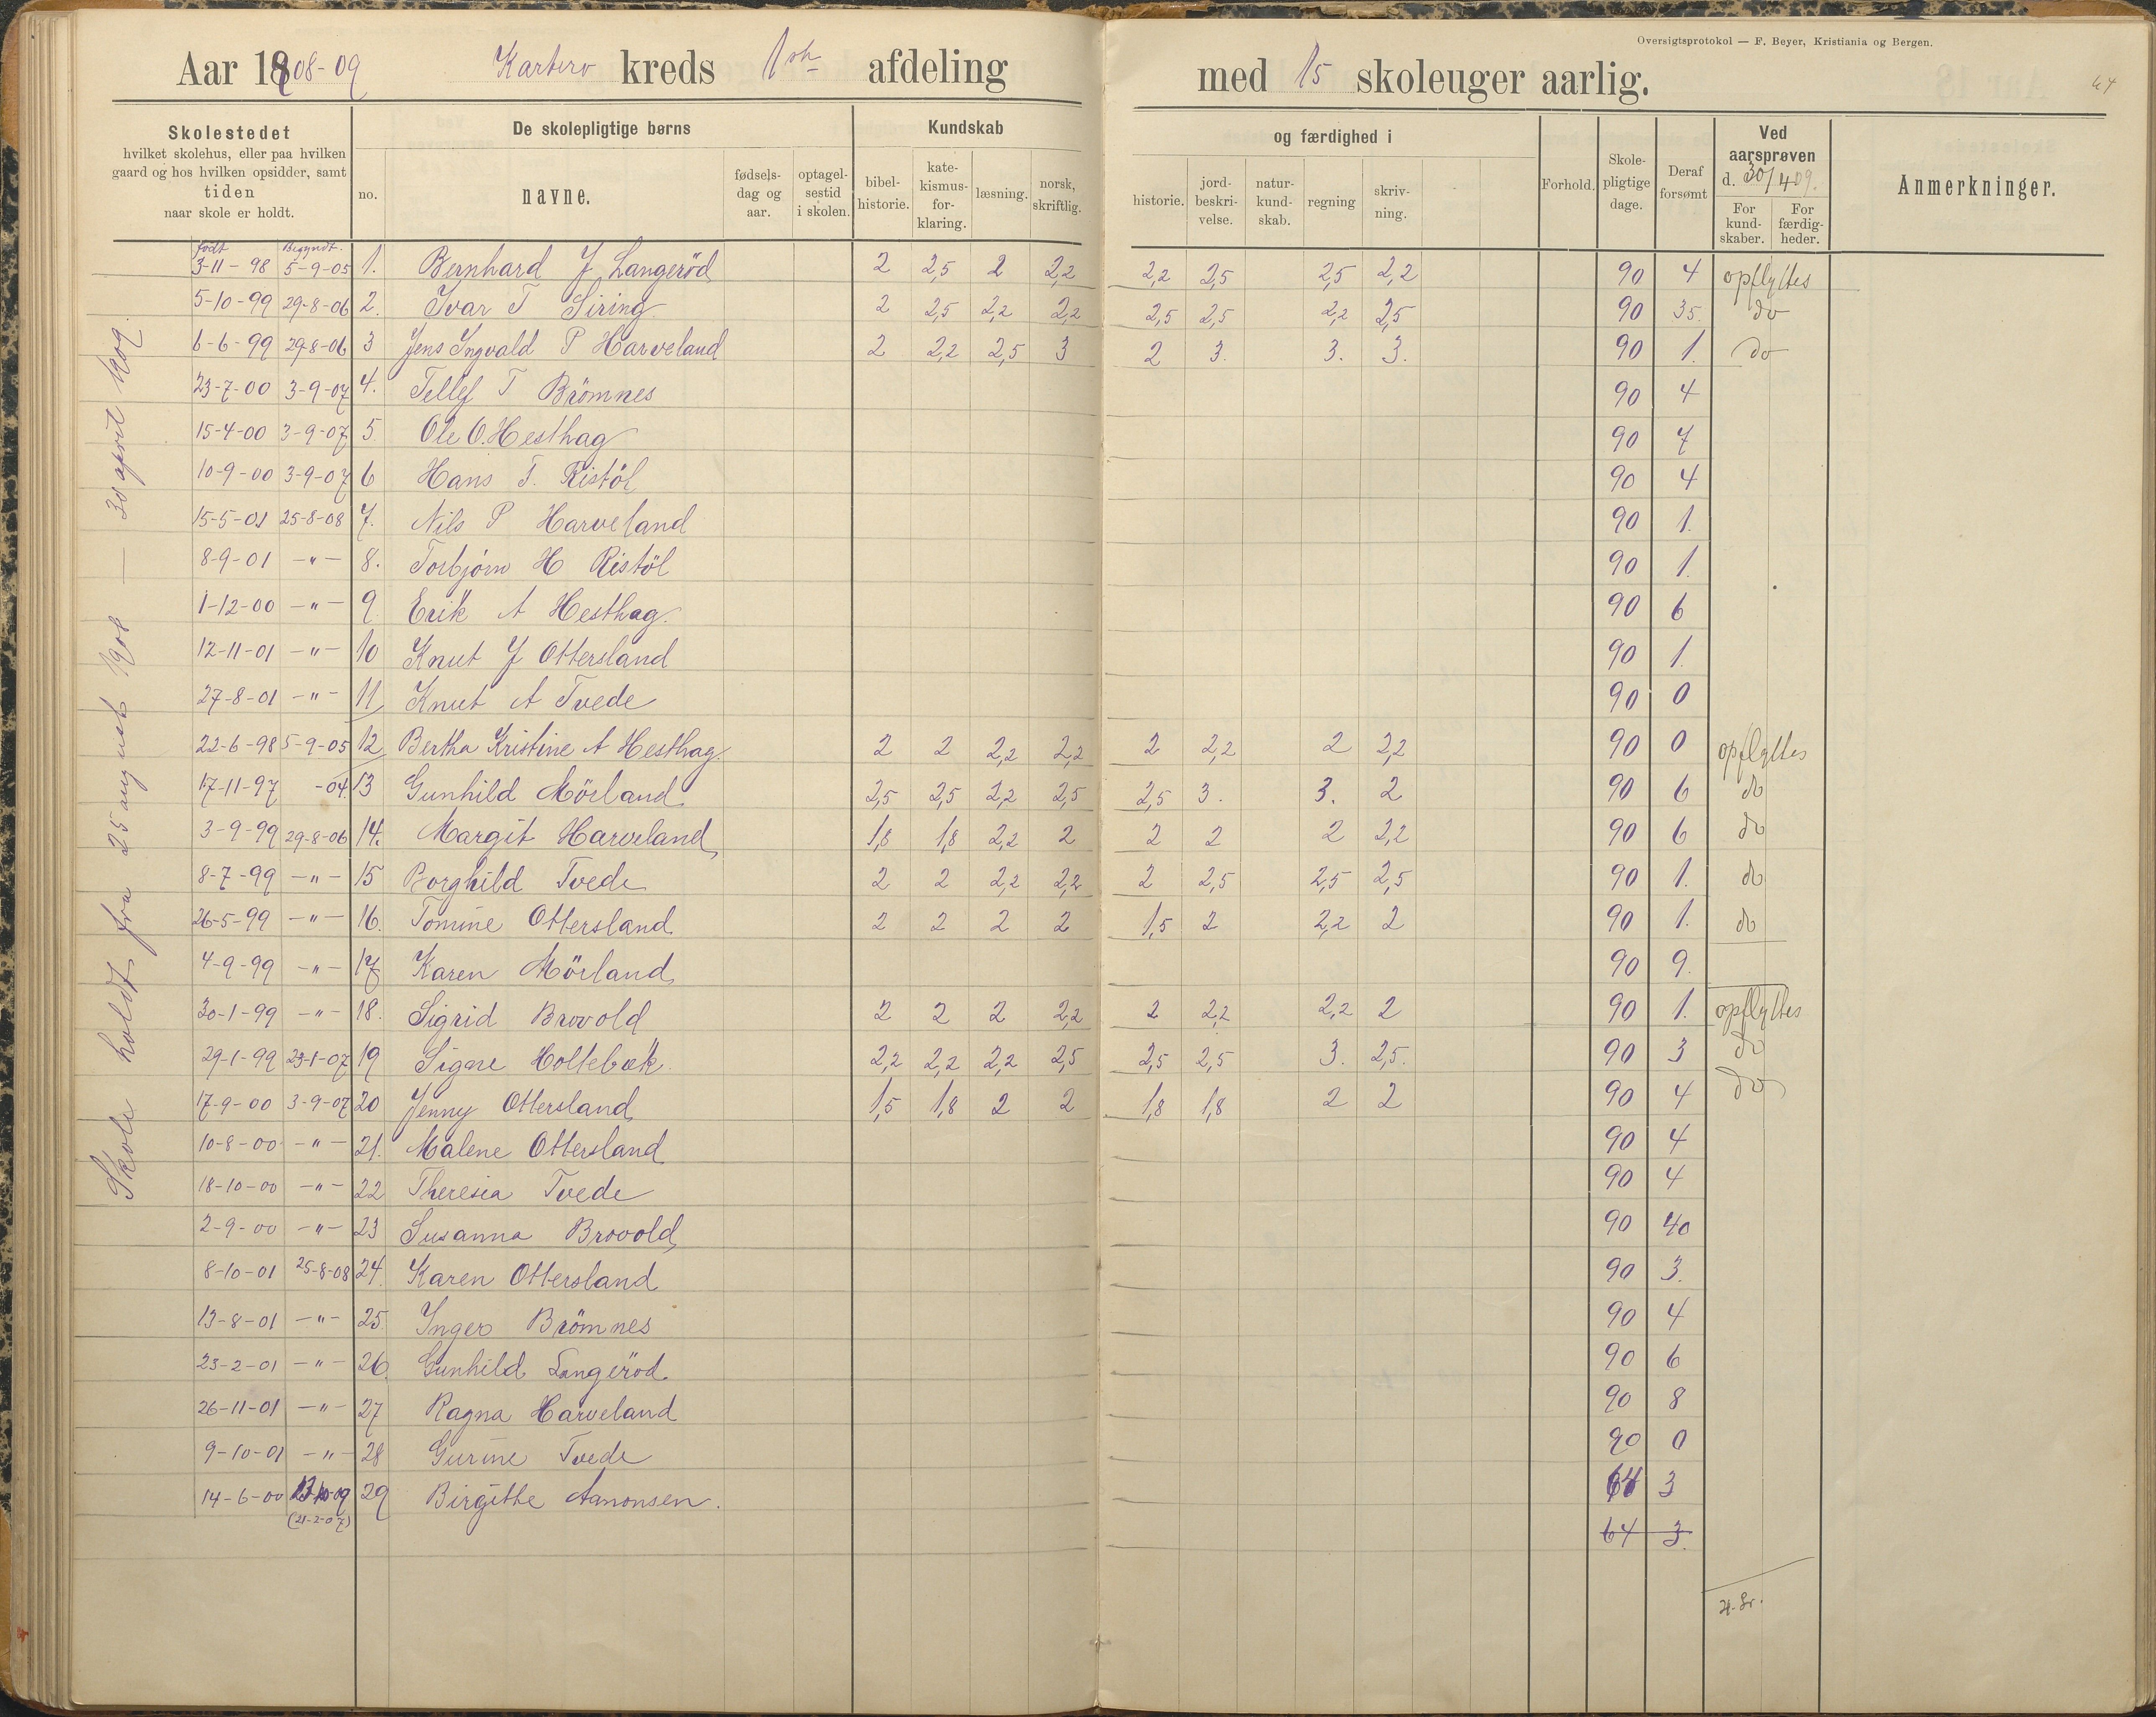 Oversigtsprotokol — F. Beyer, Kristiania og Bergen.
Aar 1908-09 kreds 1ste afdeling med 15 skoleuger aarlig. 64
Skolestedet
hvilket skolehus, eller paa hvilken
gaard og hos hvilken opsidder, samt
tiden
naar skole er holdt.
De skolepligtige børns
no. navne. fødsels-dag og aar. optagel-sestid i skolen.
Kundskab og færdighed i
bibel-historie. kate-kismus-for-klaring. læsning. norsk, skriftlig. historie. jord-beskri-velse. natur-kund-skab. regning skriv-ning.
Forhold. Skole-pligtige dage. Deraf forsømt
Ved aarsprøven d. 30/4 09.
For kund-skaber. For færdig-heder.
Anmerkninger.
Skole holdt fra 25 august 1908 — 30 april 1909.
født Begyndt.
3-11-98 5-9-05 1. Bernhard J Langerød 2 2,5 2 2,2 2,2 2,5 2,5 2,2 90 4 opflyttes
5-10-99 29-8-06 2. Ivar T Siring 2 2,5 2,2 2,2 2,5 2,5 2,2 2,5 90 35. do
6-6-99 29-8-06 3 Jens Ingvald P Harveland 2 2,2 2,5 3 2 3. 3. 3. 90 1. do
23-7-00 3-9-07 4. Tellef T Brömnes 90 4
15-4-00 3-9-07 5. Ole O. Hesthag 90 7
10-9-00 3-9-07 6 Hans T. Ristöl 90 4
15-5-01 25-8-08 7. Nils P Harveland 90 1.
8-9-01 -"- 8. Torbjörn H Ristöl 90 1.
1-12-00 -"- 9. Erik A Hesthag. 90 6
12-11-01 -"- 10 Knut J Ottersland 90 1.
27-8-01 -"- 11 Knut A Tvede 90 0
22-6-98 5-9-05 12 Bertha Kristine A Hesthag. 2 2 2,2 2,2 2 2,2 2 2,2 90 0 opflyttes
17-11-97 -04. 13 Gunhild Mörland 2,5 2,5 2,2 2,5 2,5 3. 3. 2 90 6 do
3-9-99 29-8-06 14. Margit Harveland 1,8 1,8 2,2 2 2 2 2 2,2 90 6 do
8-7-99 -"- 15 Borghild Tvede 2 2 2,2 2,2 2 2,5 2,5 2,5 90 1. do
26-5-99 -"- 16. Tomine Ottersland 2 2 2 2 1,5 2 2,2 2 90 1. do
4-9-99 -"- 17 Karen Mörland 90 9.
30-1-99 -"- 18. Sigrid Brovold 2 2 2 2,2 2 2,2 2,2 2 90 1. opflyttes
29-1-99 23-1-07 19 Signe Holtebæk. 2,2 2,2 2,2 2,5 2,5 2,5 3. 2,5. 90 3 do
17-9-00 3-9-07 20 Jenny Ottersland 1,5 1,8 2 2 1,8 1,8 2 2 90 4 do
10-8-00 -"- 21. Malene Ottersland 90 4
18-10-00 -"- 22 Theresia Tvede 90 4
2-9-00 -"- 23 Susanna Brovold 90 40
8-10-01 25-8-08 24. Karen Ottersland 90 3.
13-8-01 -"- 25. Inger Brömnes 90 4
23-2-01 -"- 26. Gunhild Langeröd 90 6
26-11-01 -"- 27 Ragna Harveland 90 8
9-10-01 -"- 28 Gurine Tvede 90 0
14-6-00 29 Birgithe Aanonsen. 64 3
(21-2-07)
64 3.